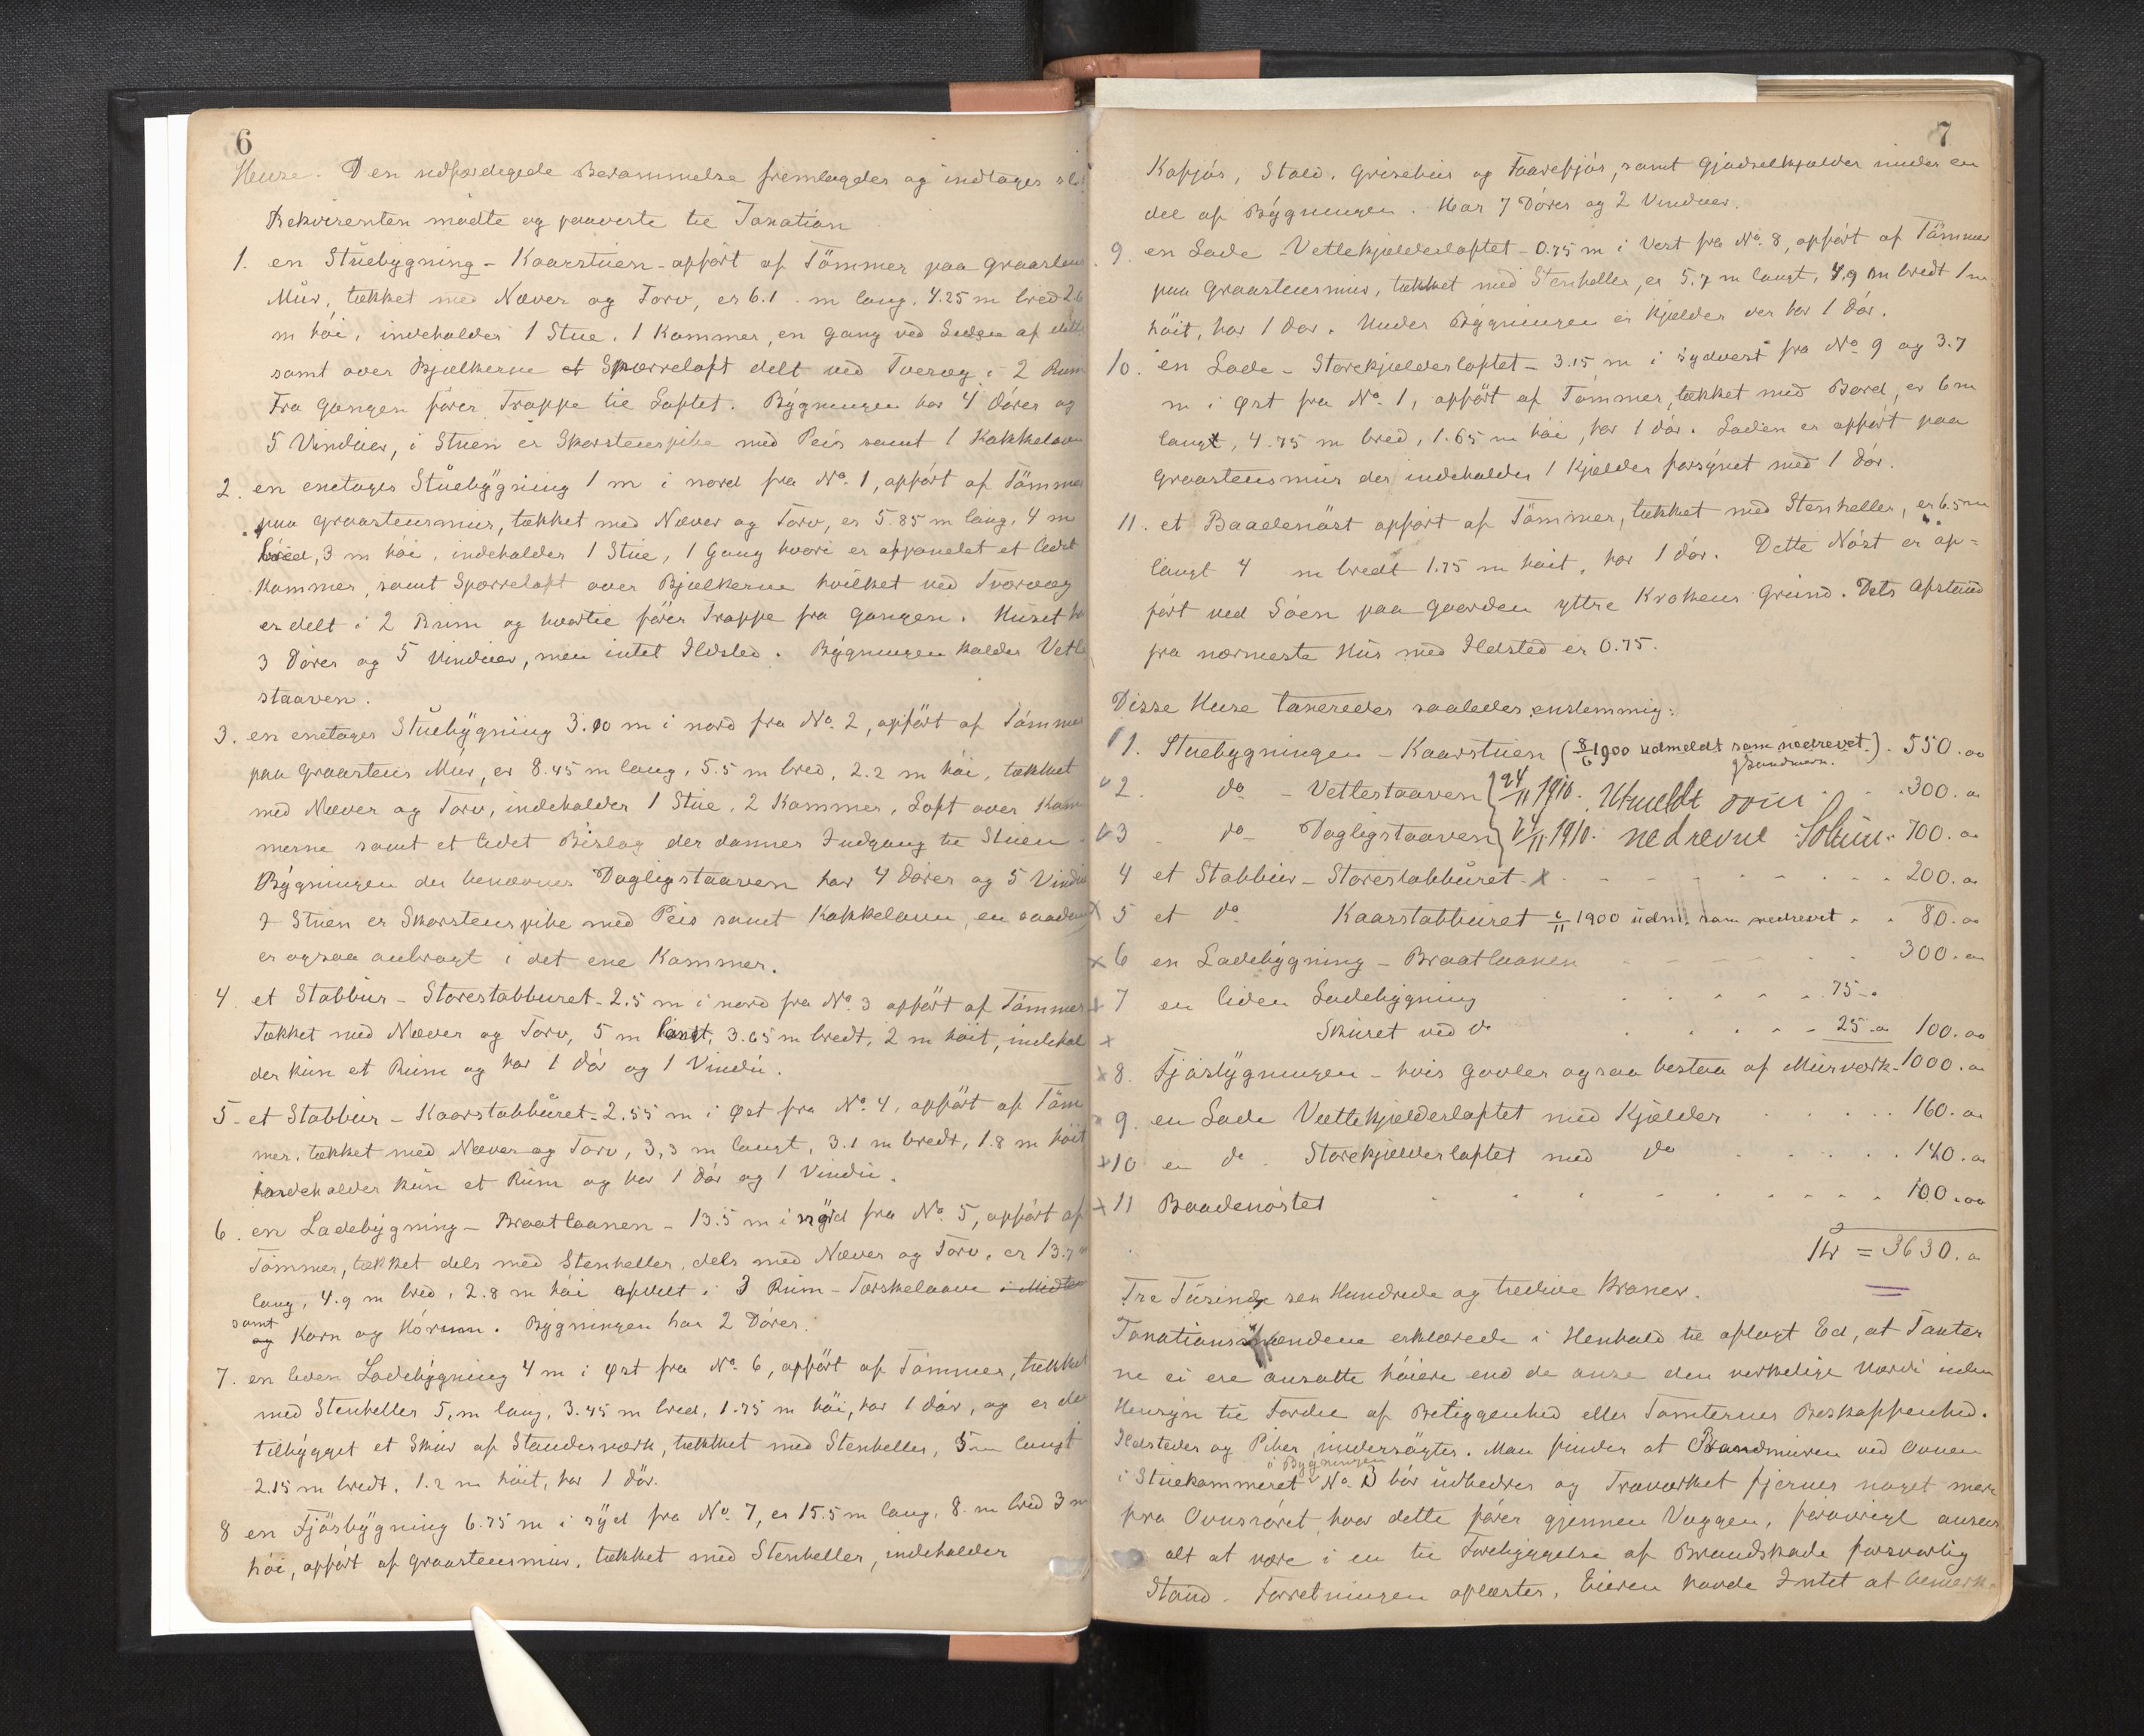 6
Huse. Den udfærdigede Berammelse fremlagdes og indtages
Rekvirenten mødte og paaviste til Taxation
1. en Stuebygning - Kaarstuen - opført af Tömmer paa Graasteens
Mür, tækket med Næver og Torv, er 6.1 m lang, 4.25 m bred 2.6
m höi, indeholder 1 Stue, 1 Kammer, en Gang ved Siden af dette
samt over Bjelkerne et Sperreloft delt ved Tvervæg i 2 Rum
Fra Gangen förer Trappe til Loftet. Bygningen har 4 Dörer og
5 Vinduer, i Stuen er Skorstenspibe med Peis samt 1 Kakkelovn
2. en enetages Stuebygning 1 m i nord fra No. 1, opfört af Tömmer
paa Graasteensmür, tækket med Næver og Torv, er 5.85 m lang, 4 m
bred, 3 m höi, indeholder 1 Stue, 1 Gang hvori er afpanelet et lidet
Kammer, samt Sperreloft over Bjelkerne hvilket ved Tvervæg
er delt i 2 Rum og hvortil förer Trappe fra Gangen. Huset har
3 Dörer og 5 Vinduer, men intet Ildsted. Bygningen kaldes Vetle
staaven.
3. en enetages Stuebygning 3.10 m i nord fra No. 2, opfört af Tömmer
paa Graasteens Mür, er 8.45 m lang, 5.5 m bred, 2.2 m höi, tækket
med Næver og Torv, indeholder 1 Stue, 2 Kammer, Loft over Kam
merne samt et lidet Bislag der danner Indgang til Stuen
Bygningen der benævnes Dagligstaaven har 4 Dörer og 5 Vinduer
I Stuen er Skorstenspibe med Peis samt Kakkelovn, en saadan
er ogsaa anbragt i det ene Kammer.
4. et Stabbür - Storestabburet - 2.5 m i nord fra No. 3 opfört af Tömmer
Tækket med Næver og Torv, 5 m langt, 3.65 m bredt, 2 m höit, indehol
der kün et Rüm og har 1 Dör og 1 Vindü.
5. et Stabbür - Kaarstabbüret - 2.55 m i Øst fra No. 4, opfört af Töm
mer, tækket med Næver og Torv, 3,3 m langt, 3.1 m bredt, 1.8 m höit
indeholder kün et Rüm og har 1 Dör og 1 Vindü.
6. en Ladebygning - Braatlaanen - 13.5 m i syd fra No. 5, opfört af
Tömmer, tækket dels med Stenheller, dels med Næver og Torv, er 13.7 m
lang, 4.9 m bred, 2.8 m höi afdelt i 3 Rüm - Tærskelaave i Midten
samt og Korn og Hörum. Bygningen har 2 Dörer.
7. en liden Ladebygning 4 m i Øst fra No. 6, opfört af Tömmer, tækket
med Stenheller 5 m lang, 3.45 m bred, 1.75 m höi, har 1 dör, og er der
tilbygget et Skür af Stænderværk, tækket med Stenheller, 5 m langt
2.15 m bredt, 1.2 m höit, har 1 Dör.
8 en Fjösbygning 6.75 m i syd fra No. 7, er 15.5 m lang, 8. m bred 3 m
höi, opfört af Graasteensmür, tækket med Stenheller, indeholder
7
Kofjös, Stald, Grisehus og Faarefjös, samt Gjødselkjælder under en
del af Bygningen. Har 7 Dörer og 2 Vinduer.
9. en Lade - Vetlekjælderloftet - 0.75 m i Vest fra No. 8, opfört af Tömmer
paa Graasteensmür, tækket med Stenheller, er 5.7 m langt, 4.9 m bredt 1 m
höit, har 1 Dör. Under Bygningen er Kjælder der har 1 Dör.
10. en Lade - Storekjælderloftet - 3.15 m i sydvest fra No. 9 og 3.7
m i Øst fra No. 1, opfört af Tömmer, tækket med Bord, er 6 m
langt, 4.75 m bred, 1.65 m höi, har 1 dör. Laden er opfört paa
Graasteensmür der indeholder 1 Kjælder forsynet med 1 Dör.
11. et Baadenöst opfört af Tömmer, tækket med Stenheller, er 6.5 m
langt 4 m bredt 1.75 m höit, har 1 dör. Dette Nöst er op=
fört ved Söen paa Gaarden yttre Krokens Grund. Dets Afstand
fra nærmeste Hüs med Ildsted er 0.75.
Disse Huse taxeredes saaledes enstemmig:
1. Stuebygningen - Kaarstuen (8/6 1900 udmeldt som nedrevet.) 550.00
2. do - Vetlestaaven } 24/11 1910. Utmeldt som 300.00
3 do - Dagligstaaven } 24/11 1910. nedrevne 700.00
4 et Stabbür - Storestabbüret x 200.00
x 5 et do Kaarstabbüret 6/11 1900 udm. som nedrevet 80.00
x 6 en Ladebygning - Braatlaanen 300.00
x 7 en liden Ladebygning 75.-
x Sküret ved do 25.00 100.00
x 8. Fjösbygningen - hvis Gavler ogsaa bestaa af Mürværk - 1000.00
9. en Lade Vættlekjælderloftet med Kjælder 160.00
x 10 en do Storekjælderloftet med do 140.00
x 11 Baadenöstet 100.00
Kr = 3630.00
Tre Tüsinde sex Hundrede og tredive Kroner.
Taxationsmændene erklærede i Henhold til aflagt Ed, at Taxter
ne ei ere ansatte höiere end de anse den virkelige Værdi uden
Hensyn til Fordel af Beliggenhed eller Tomternes Beskaffenhed.
Ildsteder og Piber undersögtes. Man finder at Brandmüren ved Ovnen
i Bygningen
i Stuekammeret No. 3 bör üdbedres og Træværket fjernes noget mere
fra Ovnsröret, hvor dette förer gjennem Væggen, forövrigt ansees
alt at være i en til Forebyggelse af Brandskade forsvarlig
Stand. Forretningen oplæstes, Eieren havde Intet at bemærke